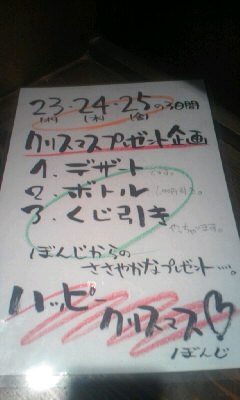 23・24・25の3日間
(水) (木) (金)
クリスマスプレゼント企画
1. デザート
2. ボトル
3. くじ引き
ぼんじからの
ささやかなプレゼント…。
ハッピー
クリスマス♡
ぼんじ